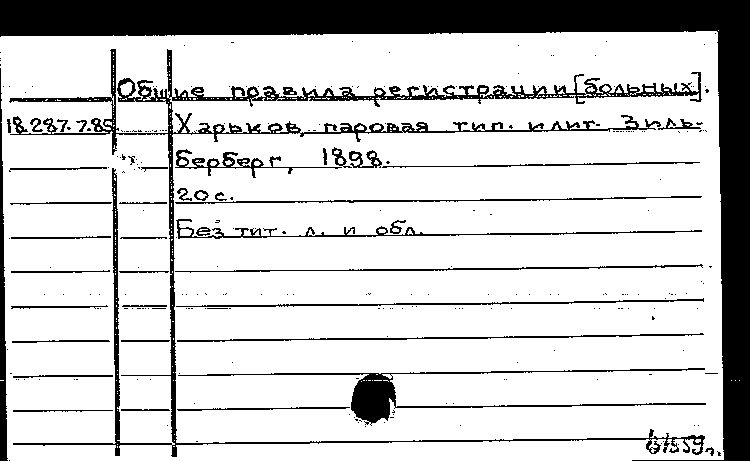 Общие правила регистрации [больных].
18.287.7.85 Харьков, паровая тип. и лит. Зиль-
берберг, 1898.
20 с.
Без тит. л. и обл.